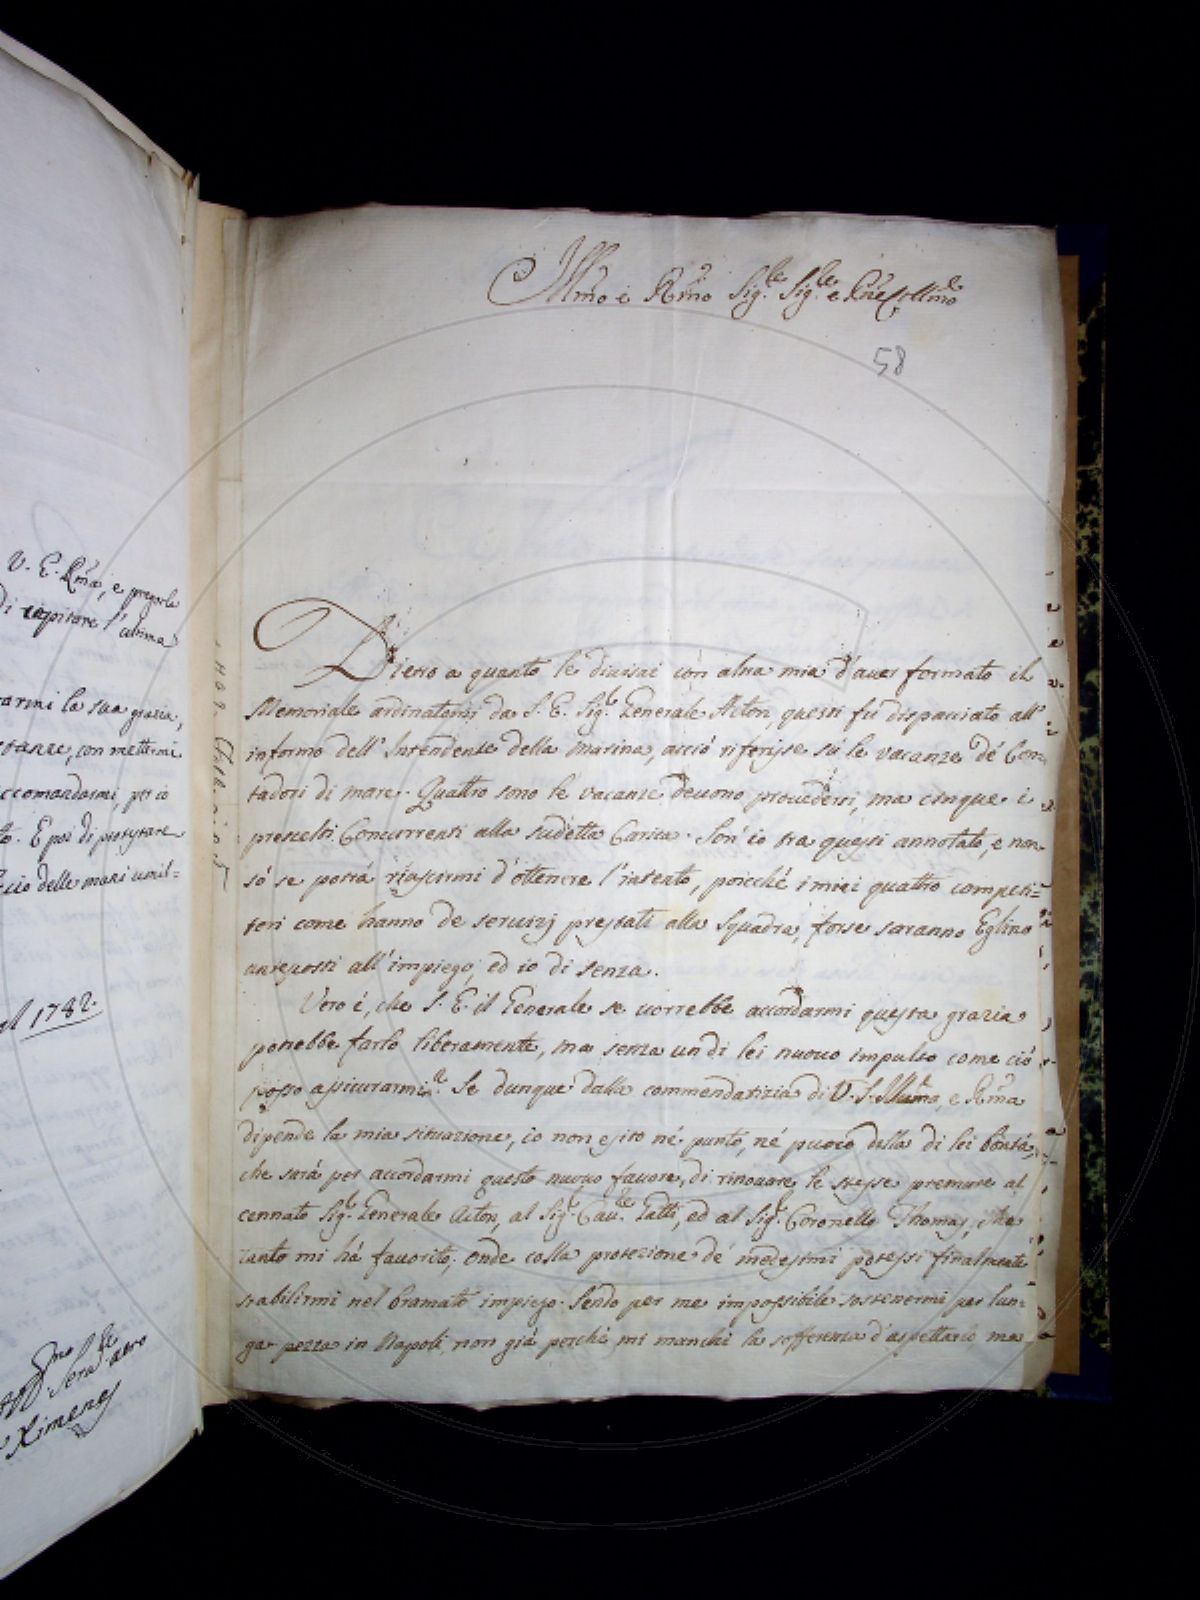 Illmo e Rmo Sig.re Sig.re e Pne Collmo
58
Dietro a quanto le divisai con altra mia d'aver formato il
Memoriale ordinatomi da S. E. Sig.r Generale Acton, questi fù dispacciato all'
informo dell' Intendente della Marina, acciò riferisse sù le vacanze de' Con-
tadori di mare. Quattro sono le vacanze devono provedersi, ma cinque i
prescelti Concorrenti alla sudetta Carica. Son' io tra questi annotato, e non
sò se potrà riuscirmi d'ottenere l'intento, poicchè i miei quattro competi=
tori come hanno de servizj prestati alla Squadra, forse saranno Eglino
anteposti all' impiego, ed io di senza.
Vero è, che S. E. il Generale se vorrebbe accordarmi questa grazia
potrebbe farlo liberamente, ma senza un di lei nuovo impulso come ciò
posso assicurarmi. Se dunque dalla commendatizia di V. S. Illma, e Rma
dipende la mia situazione, io non esito nè punto, nè puoco della di lei bontà,
che sarà per accordarmi questo nuovo favore, di rinovare le stesse premure al
cennato Sig.r Generale Acton, al Sig.r Cav.re Gatti, ed al Sig.r Coronello Thomas, che
tanto mi hà favorito, onde colla protezione de' medesimi potessi finalmente
stabilirmi nel bramato impiego. Sendo per me impossibile sostenermi per lun-
ga pezza in Napoli, non già perchè mi manchi la sofferenza d'aspettarlo ma
V. E. Rma, e pregarla
di capitare l'ultima
la sua grazia,
con mettermi
per io
E poi di protestare
delle mani umil=
1782.
Ximenes